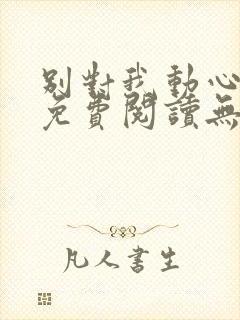 別對我動心
免費閱讀無
凡人書生